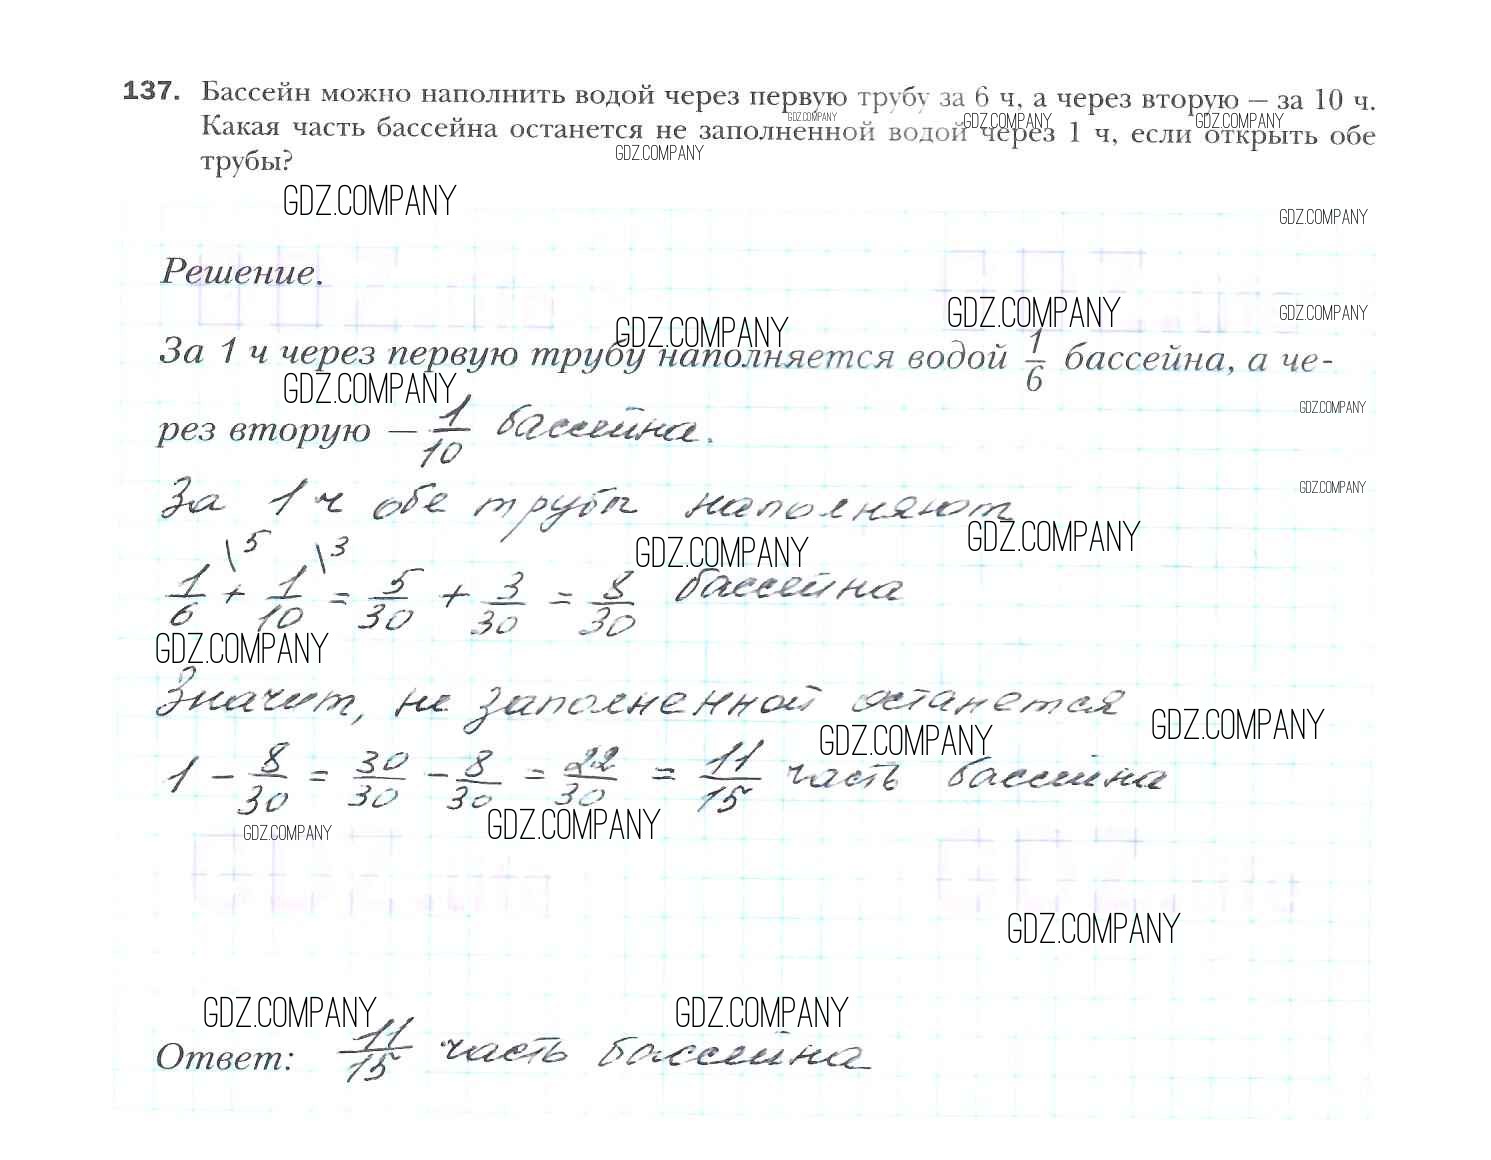 137. Бассейн можно наполнить водой через первую трубу за 6 ч, а через вторую — за 10 ч.
GDZ.COMPANY GDZ.COMPANY GDZ.COMPANY
Какая часть бассейна останется не заполненной водой через 1 ч, если открыть обе
GDZ.COMPANY
трубы?
GDZ.COMPANY GDZ.COMPANY
Решение.
GDZ.COMPANY GDZ.COMPANY GDZ.COMPANY
За 1 ч через первую трубу наполняется водой 1/6 бассейна, а че-
GDZ.COMPANY GDZ.COMPANY
рез вторую — 1/10 бассейна.
GDZ.COMPANY
За 1 ч обе трубы наполняют
GDZ.COMPANY GDZ.COMPANY
\5 \3
1/6 + 1/10 = 5/30 + 3/30 = 8/30 бассейна
GDZ.COMPANY
Значит, не заполненной останется
GDZ.COMPANY GDZ.COMPANY
1 - 8/30 = 30/30 - 8/30 = 22/30 = 11/15 часть бассейна
GDZ.COMPANY GDZ.COMPANY
GDZ.COMPANY
GDZ.COMPANY GDZ.COMPANY
Ответ: 11/15 часть бассейна